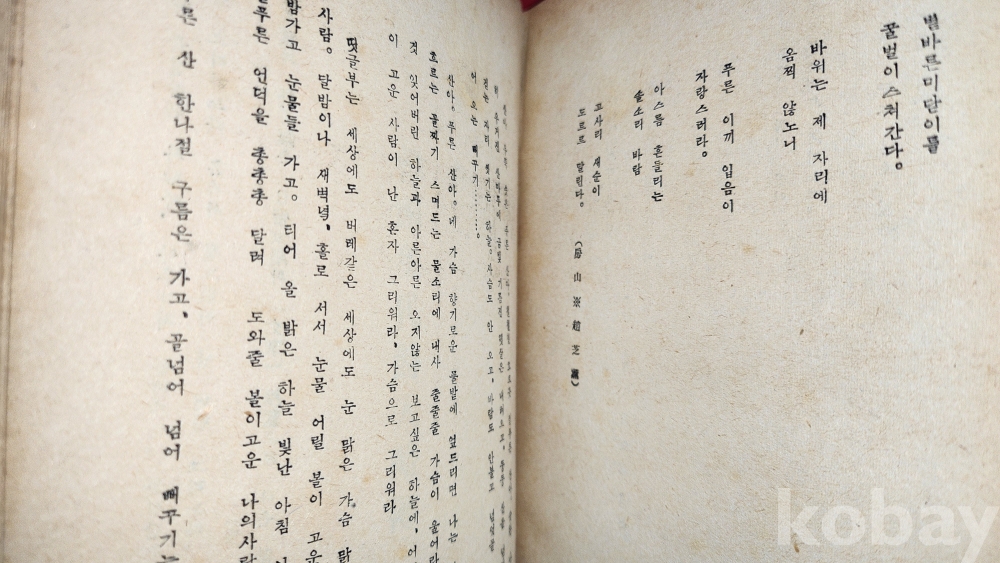 별바른 미단이를
꿀벌이 스쳐간다。
바위는 제 자리에
움찍 않노니
푸른 이끼 입음이
자랑스러라。
아스름 흔들리는
솔소리 바람
고사리 새순이
도르르 말린다。
(山 趙芝薰)
어 오는 뻐꾸기………。
산아。푸른 산아。네 가슴 향기로운 풀밭에 엎드리면 나는
흐르는 골짜기 스며드는 물소리에 내사 줄줄줄 가슴이 울어라
것 잊어버린 하늘과 아른아른 오지않는 보고싶은 하늘에、어
이 고운 사람이 난 혼자 그리워라、가슴으로 그리워라
띳글부는 세상에도 버레같은 세상에도 눈 맑은、가슴 맑
사람。달밤이나 새벽녘、홀로 서서 눈물 어릴 볼이 고운
밤가고 눈물들 가고。티어 올 밝은 하늘 빛난 아침
푸른 언덕을 총총총 달려 도와줄 볼이고운 나의사람
른 산 한나절 구름은 가고、골넘어 넘어 뻐꾸기는
kobay